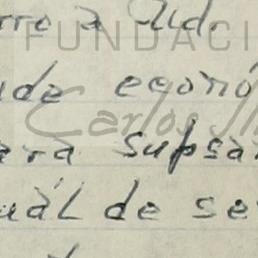 rro a Ud.
FUNDACI
de econó
Carlos
ara supsa
uál de se